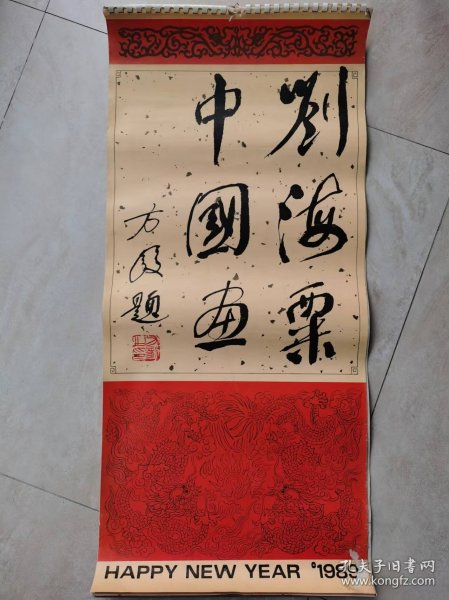 劉海粟
中國画
方毅題
HAPPY NEW YEAR
孔夫子旧书网
www.kongfz.com